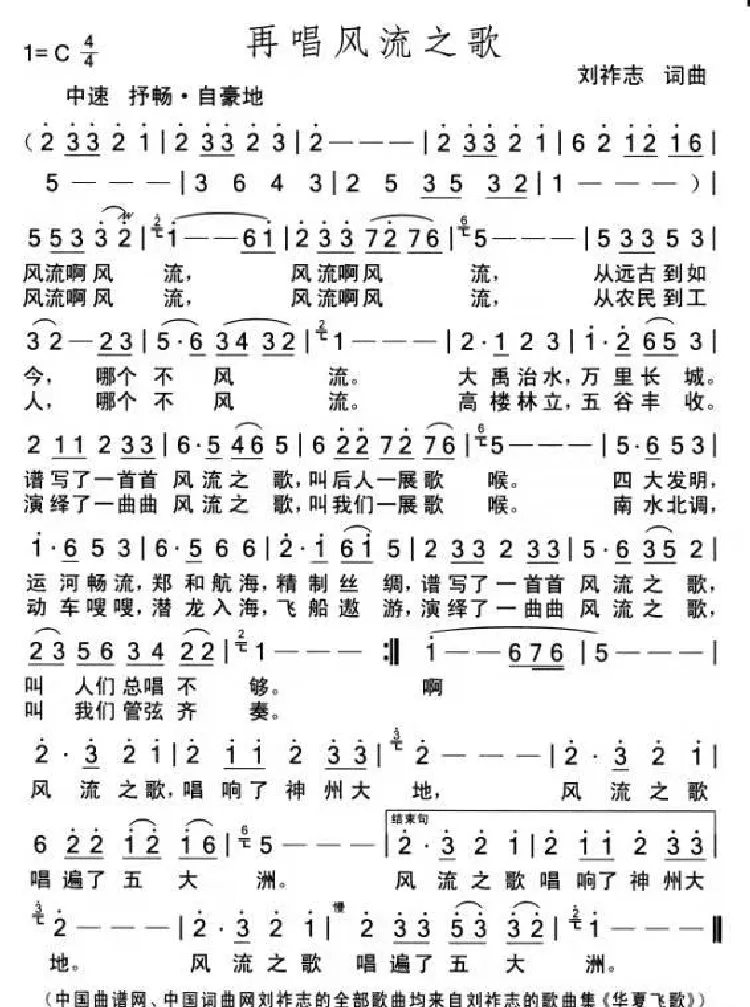 再唱风流之歌
1=C 4/4
刘祚志 词曲
中速 抒畅·自豪地
( 2 33 2 1 | 2 33 2 3 | 2 - - - | 2 33 2 1 | 6 2 12 16 |
5 - - - | 3 6 4 3 | 2 5 35 32 | 1 - - - ) |
5 53 3 2 | 1 - - 61 | 2 33 72 76 | 5 - - - | 5 33 5 3 |
风流啊风 流, 风流啊风 流, 从远古到如
风流啊风 流, 风流啊风 流, 从农民到工
32 - - 23 | 5·6 34 32 | 1 - - - | 2·1 2 3 | 5·1 2 | 2·6 5 3 |
今, 哪个 不 风 流。 大禹治水,万里长城。
人, 哪个 不 风 流。 高楼林立,五谷丰收。
2 11 2 33 | 6·5 46 5 | 6 22 72 76 | 5 - - - | 5·6 5 3 |
谱写了一首首 风流之歌,叫后人一展歌 喉。 四大发明,
演绎了一曲曲 风流之歌,叫我们一展歌 喉。 南水北调,
1·6 5 3 | 6·5 6 6 | 2·1 61 5 | 2 33 2 33 | 5·6 35 2 |
运河畅流,郑和航海,精制丝绸,谱写了一首首 风流之歌,
动车嗖嗖,潜龙入海,飞船遨游,演绎了一曲曲 风流之歌,
23 56 34 22 | 1 - - - :| 1 - - 676 | 5 - - - |
叫 人们总唱不 够。 啊
叫 我们管弦齐 奏。
2·3 2 1 | 2 11 2 33 | 2 - - - | 2·3 2 1 |
风流之歌,唱响了神州大 地, 风流之歌
结束句
6 22 12 16 | 5 - - - | 2·3 2 1 | 2 11 2 33 |
唱遍了五大 洲。 风流之歌唱响了神州大
慢
2 - - - | 2·3 2 1 | 2 33 53 32 | 1 - - - ||
地。 风流之歌 唱遍了五大 洲。
(中国曲谱网、中国词曲网刘祚志的全部歌曲均来自刘祚志的歌曲集《华夏飞歌》)